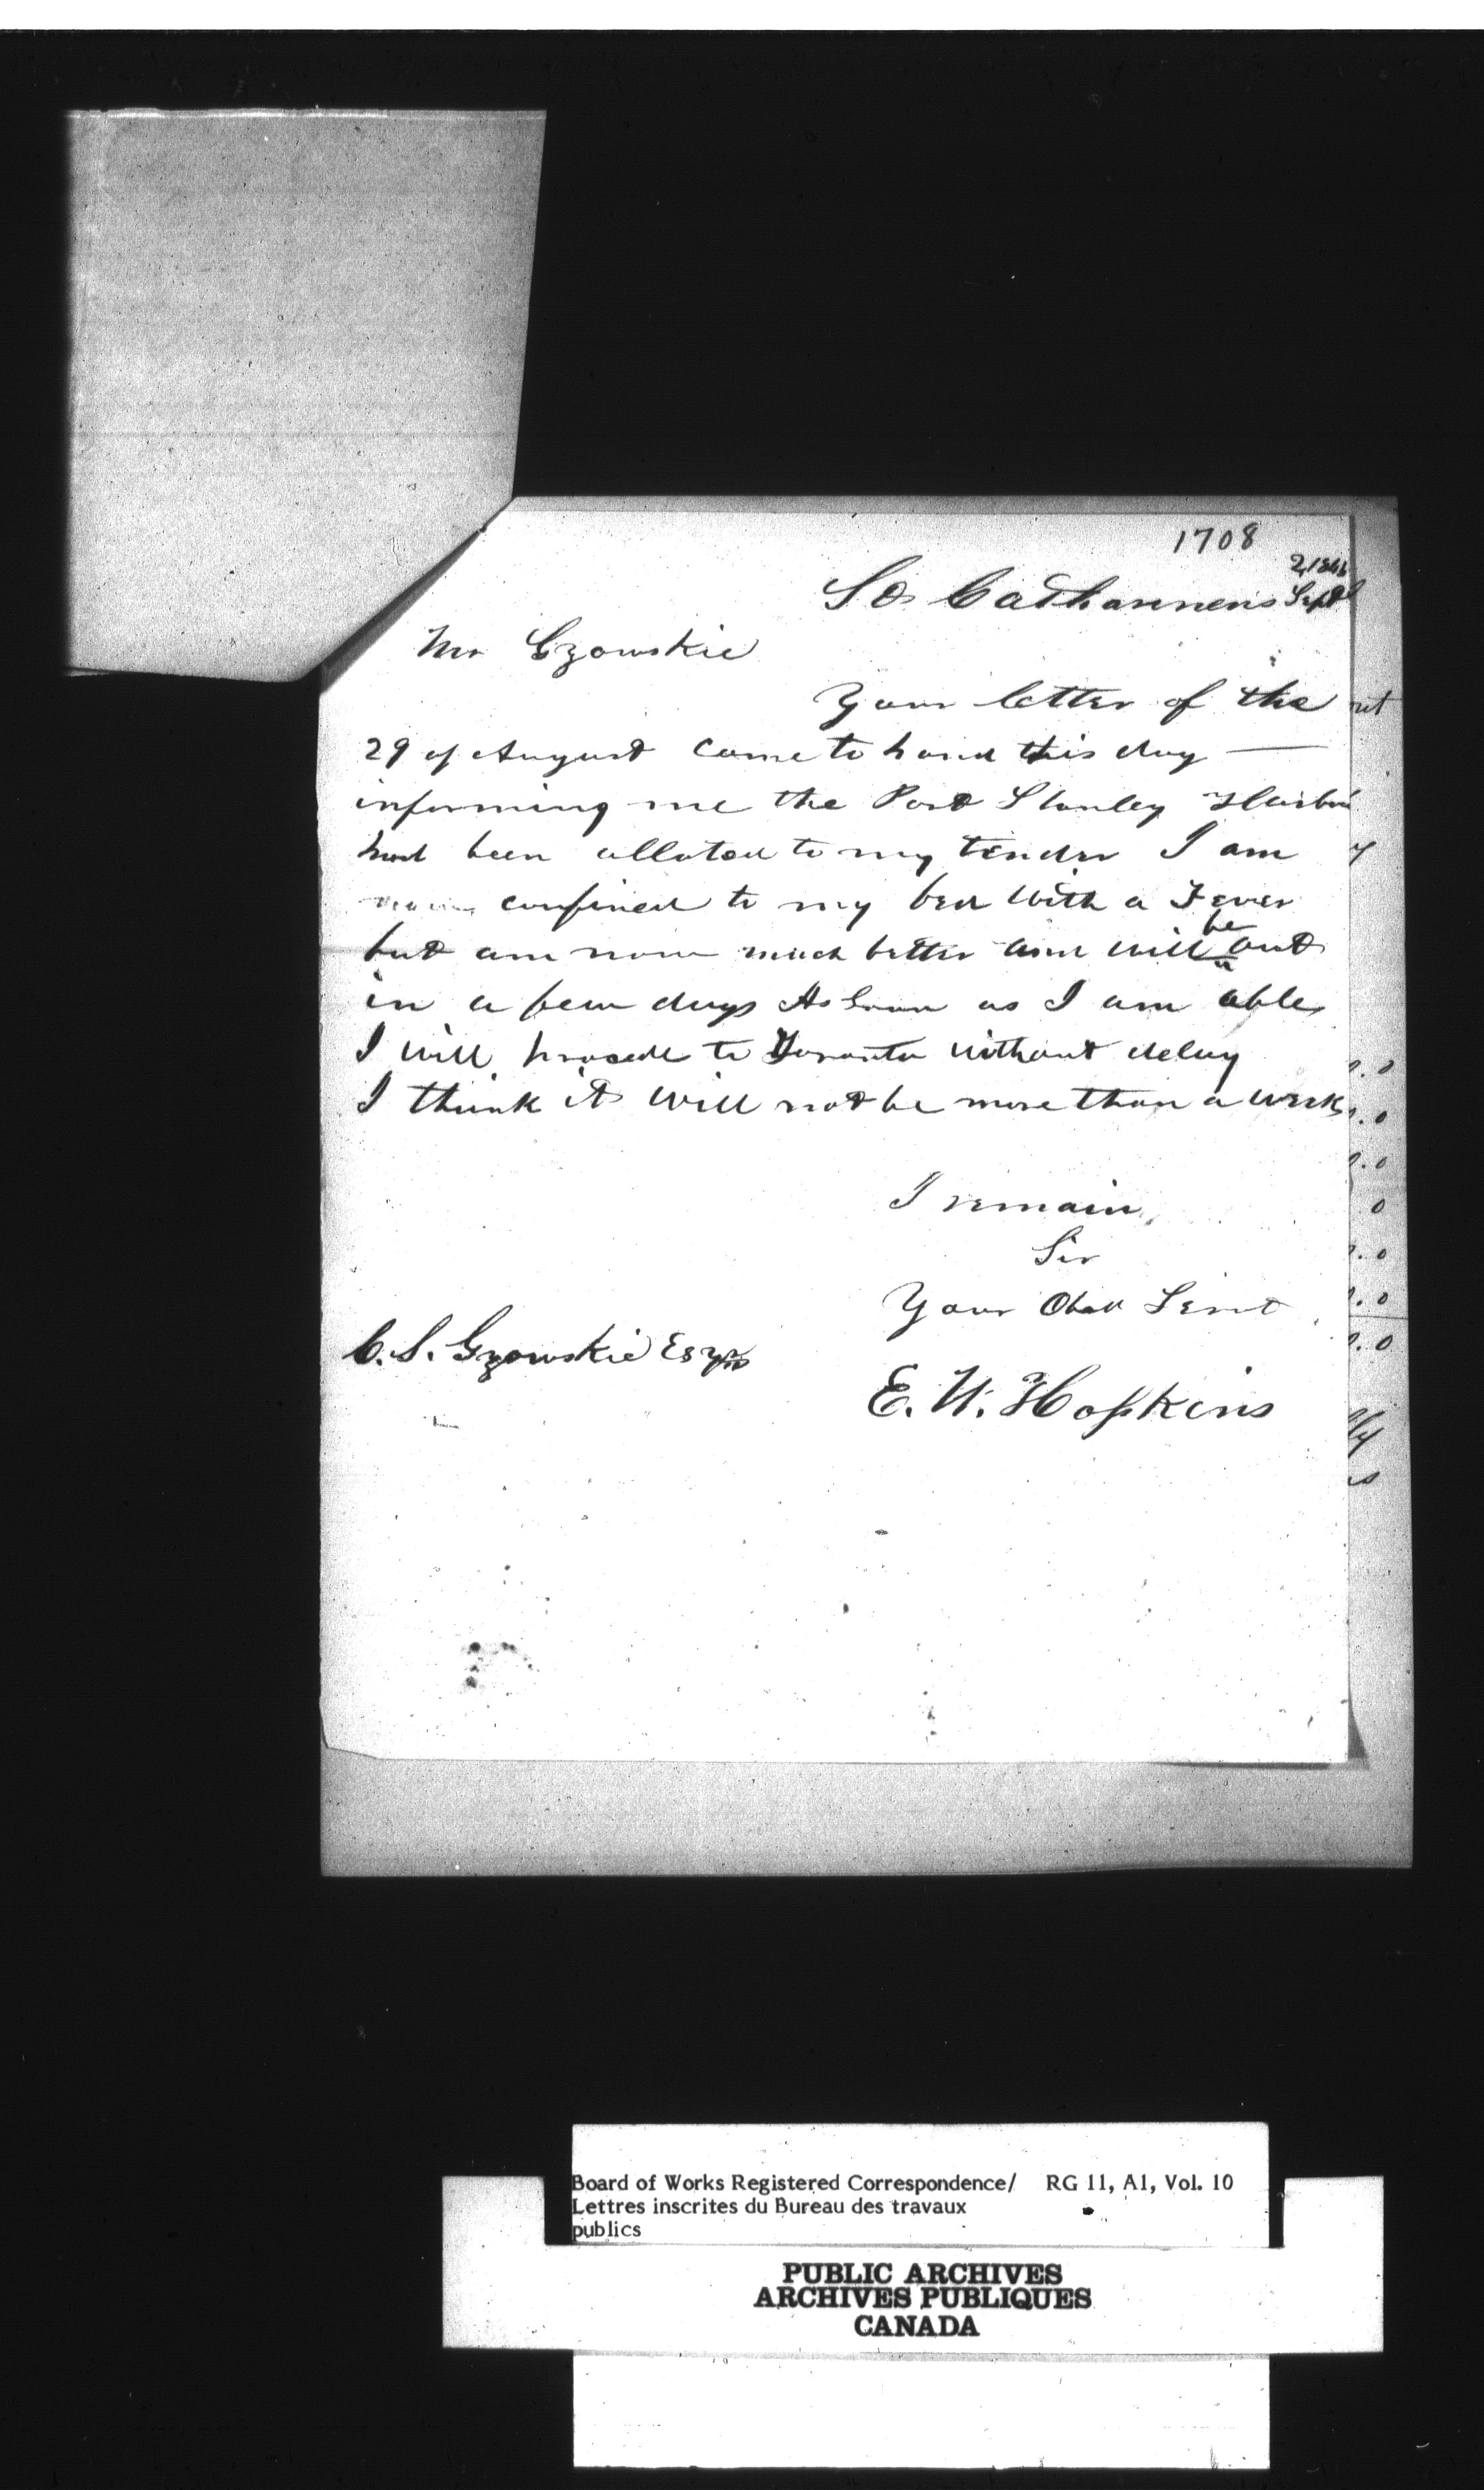 1708
St Catharinens Sept 2, 184
Mr Czowskie
Your letter of the
29 of August Came to hand this day —
informing me the Port Stanley Harbor
had been alloted to my tender I am
confined to my bed with a Fever
but am now much better and will be out
in a few days As Soon as I am able
I will procede to Toronto without delay
I think it will not be more than a week
I remain,
Sir
Your Obed Servt
C. S. Gzowskie Esqr
E. W. Hopkins
Board of Works Registered Correspondence/ RG 11, A1, Vol. 10
Lettres inscrites du Bureau des travaux
publics
PUBLIC ARCHIVES
ARCHIVES PUBLIQUES
CANADA